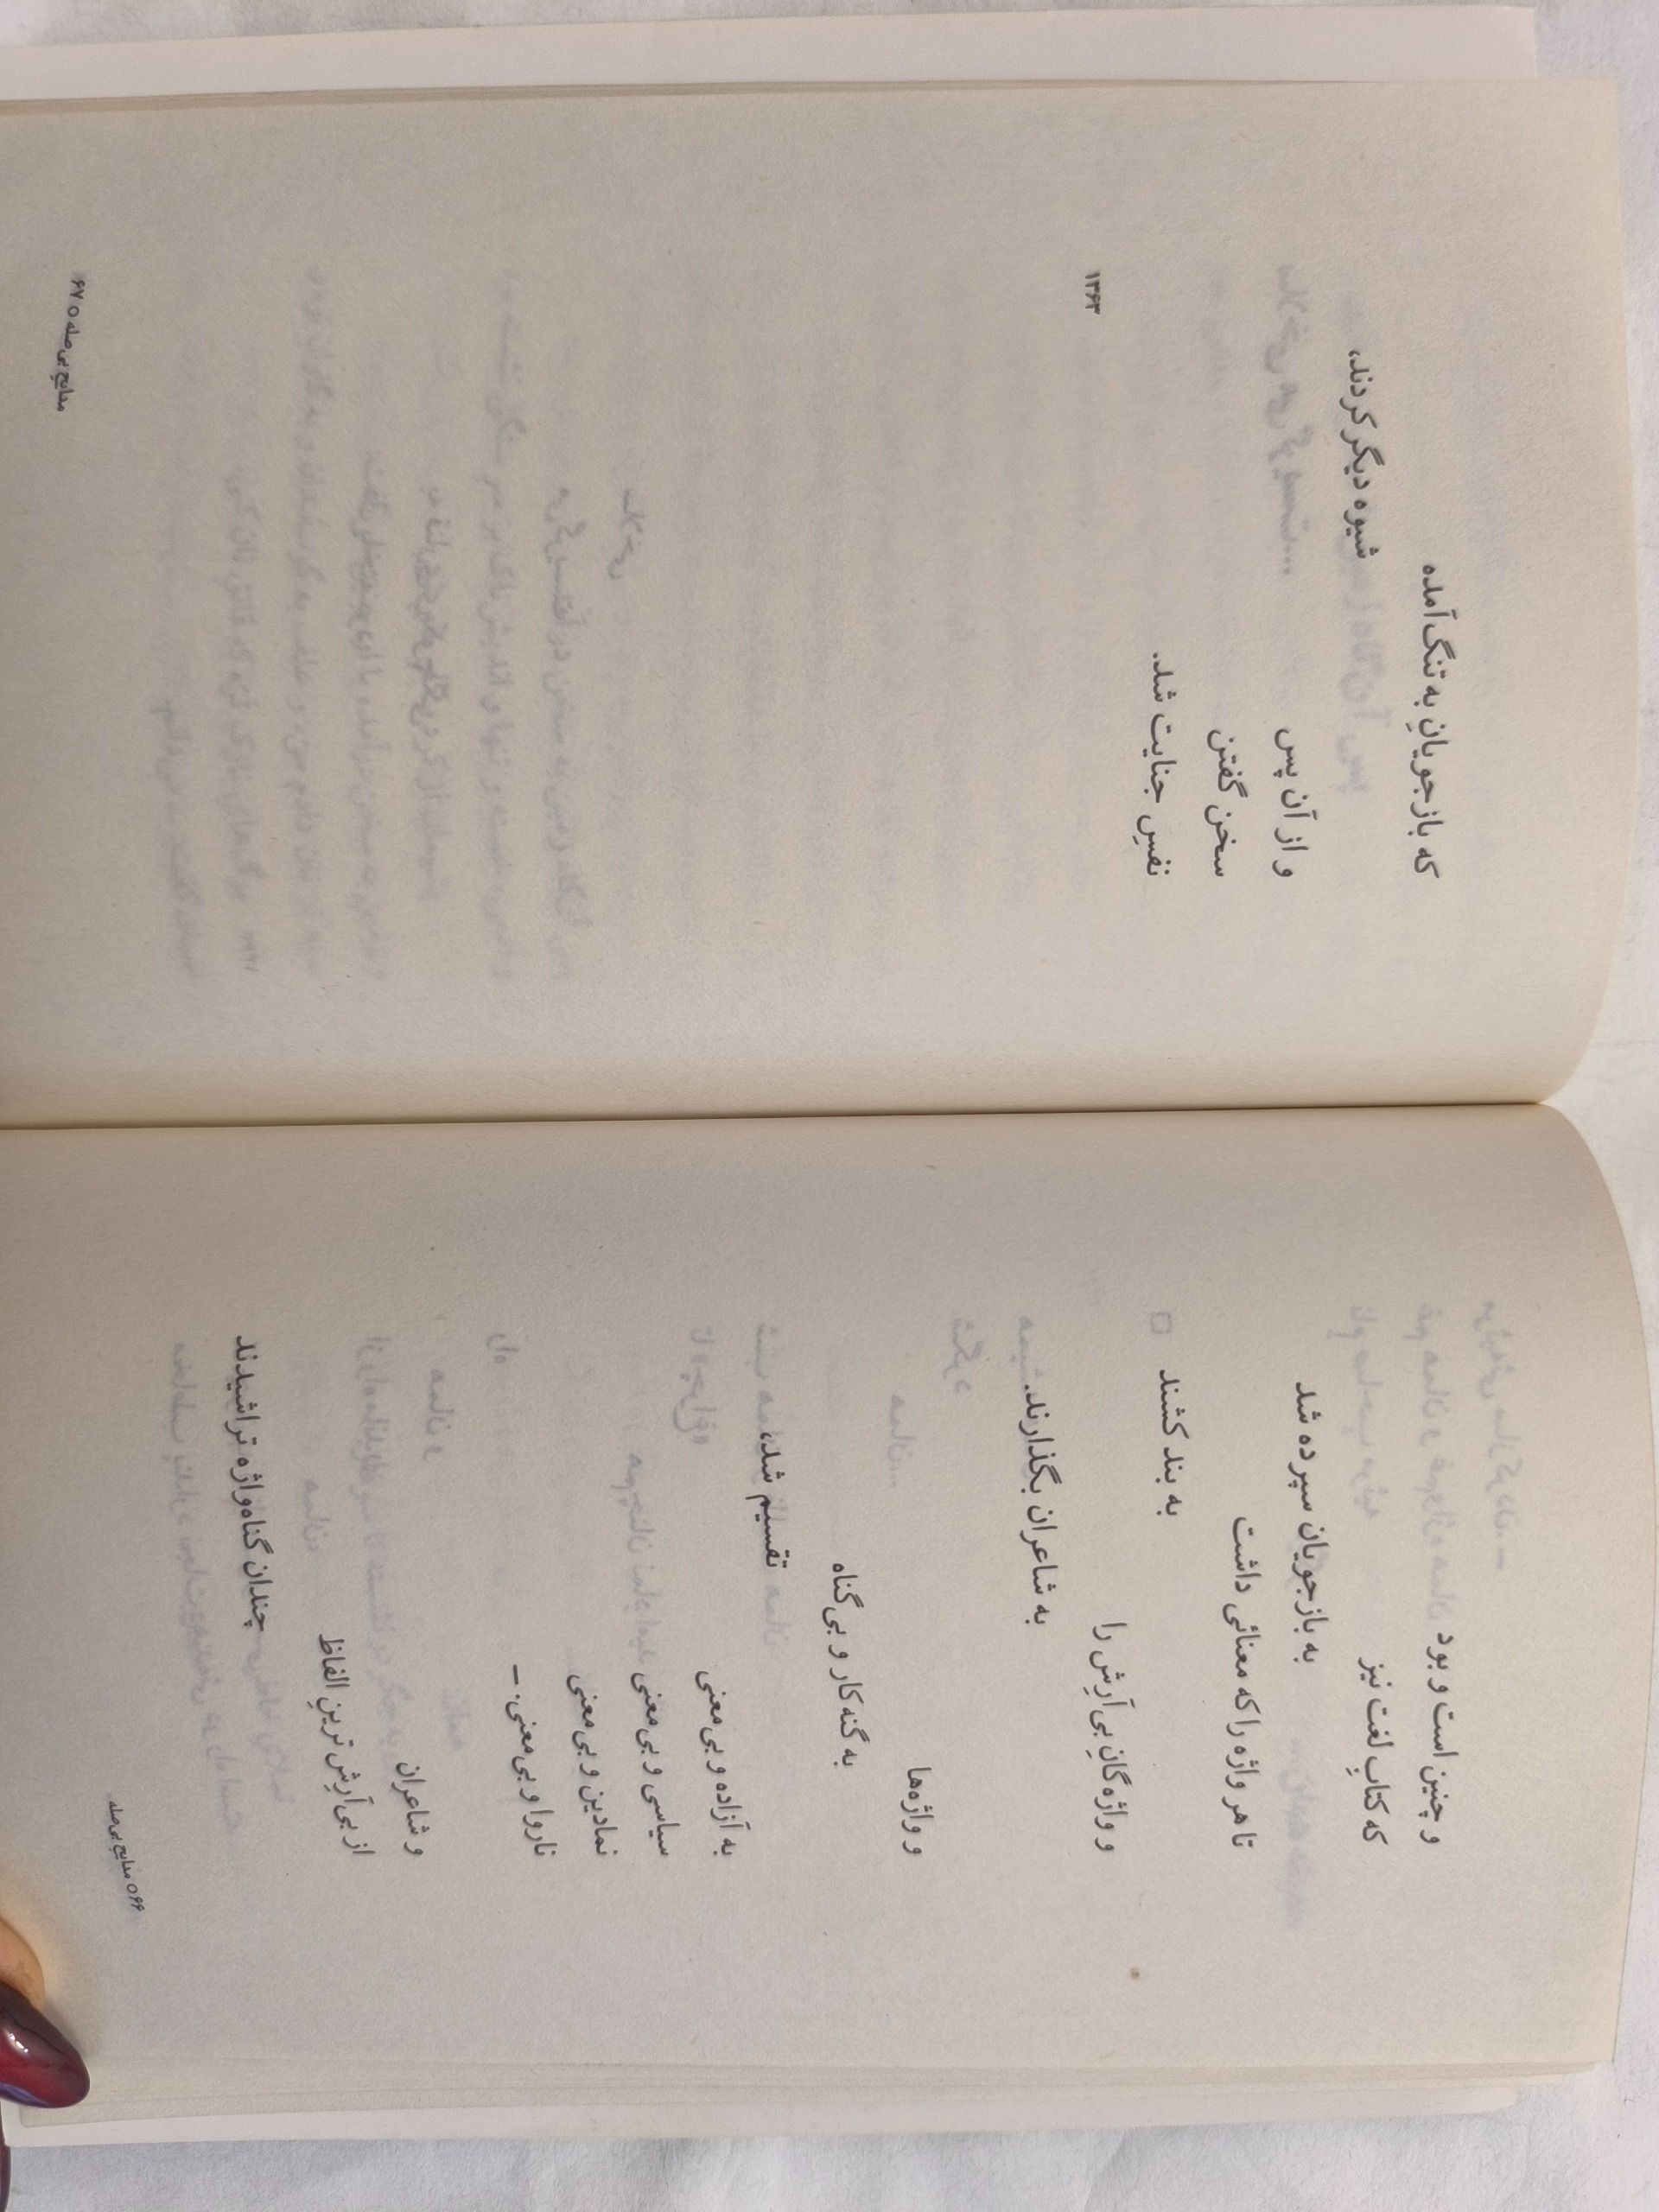 و چنین است و بود
که کتابِ لغت نیز
به بازجویان سپرده شد
تا هر واژه را که معنائی داشت
به بند کشند
و واژه‌گانِ بی‌آرِش را
به شاعران بگذارند.
و واژه‌ها
به گنه‌کار و بی‌گناه
تقسیم شد،
به آزاده و بی‌معنی
سیاسی و بی‌معنی
نمادین و بی‌معنی
ناروا و بی‌معنی. ــ
و شاعران
از بی‌آرِش‌ترینِ الفاظ
چندان گناه‌واژه تراشیدند
۶۶ ○ مدایح بی‌صله
که بازجویانِ به تنگ آمده
شیوه دیگر کردند،
و از آن پس
سخن گفتن
نفسِ جنایت شد.
۱۳۶۳
مدایح بی‌صله ○ ۶۷